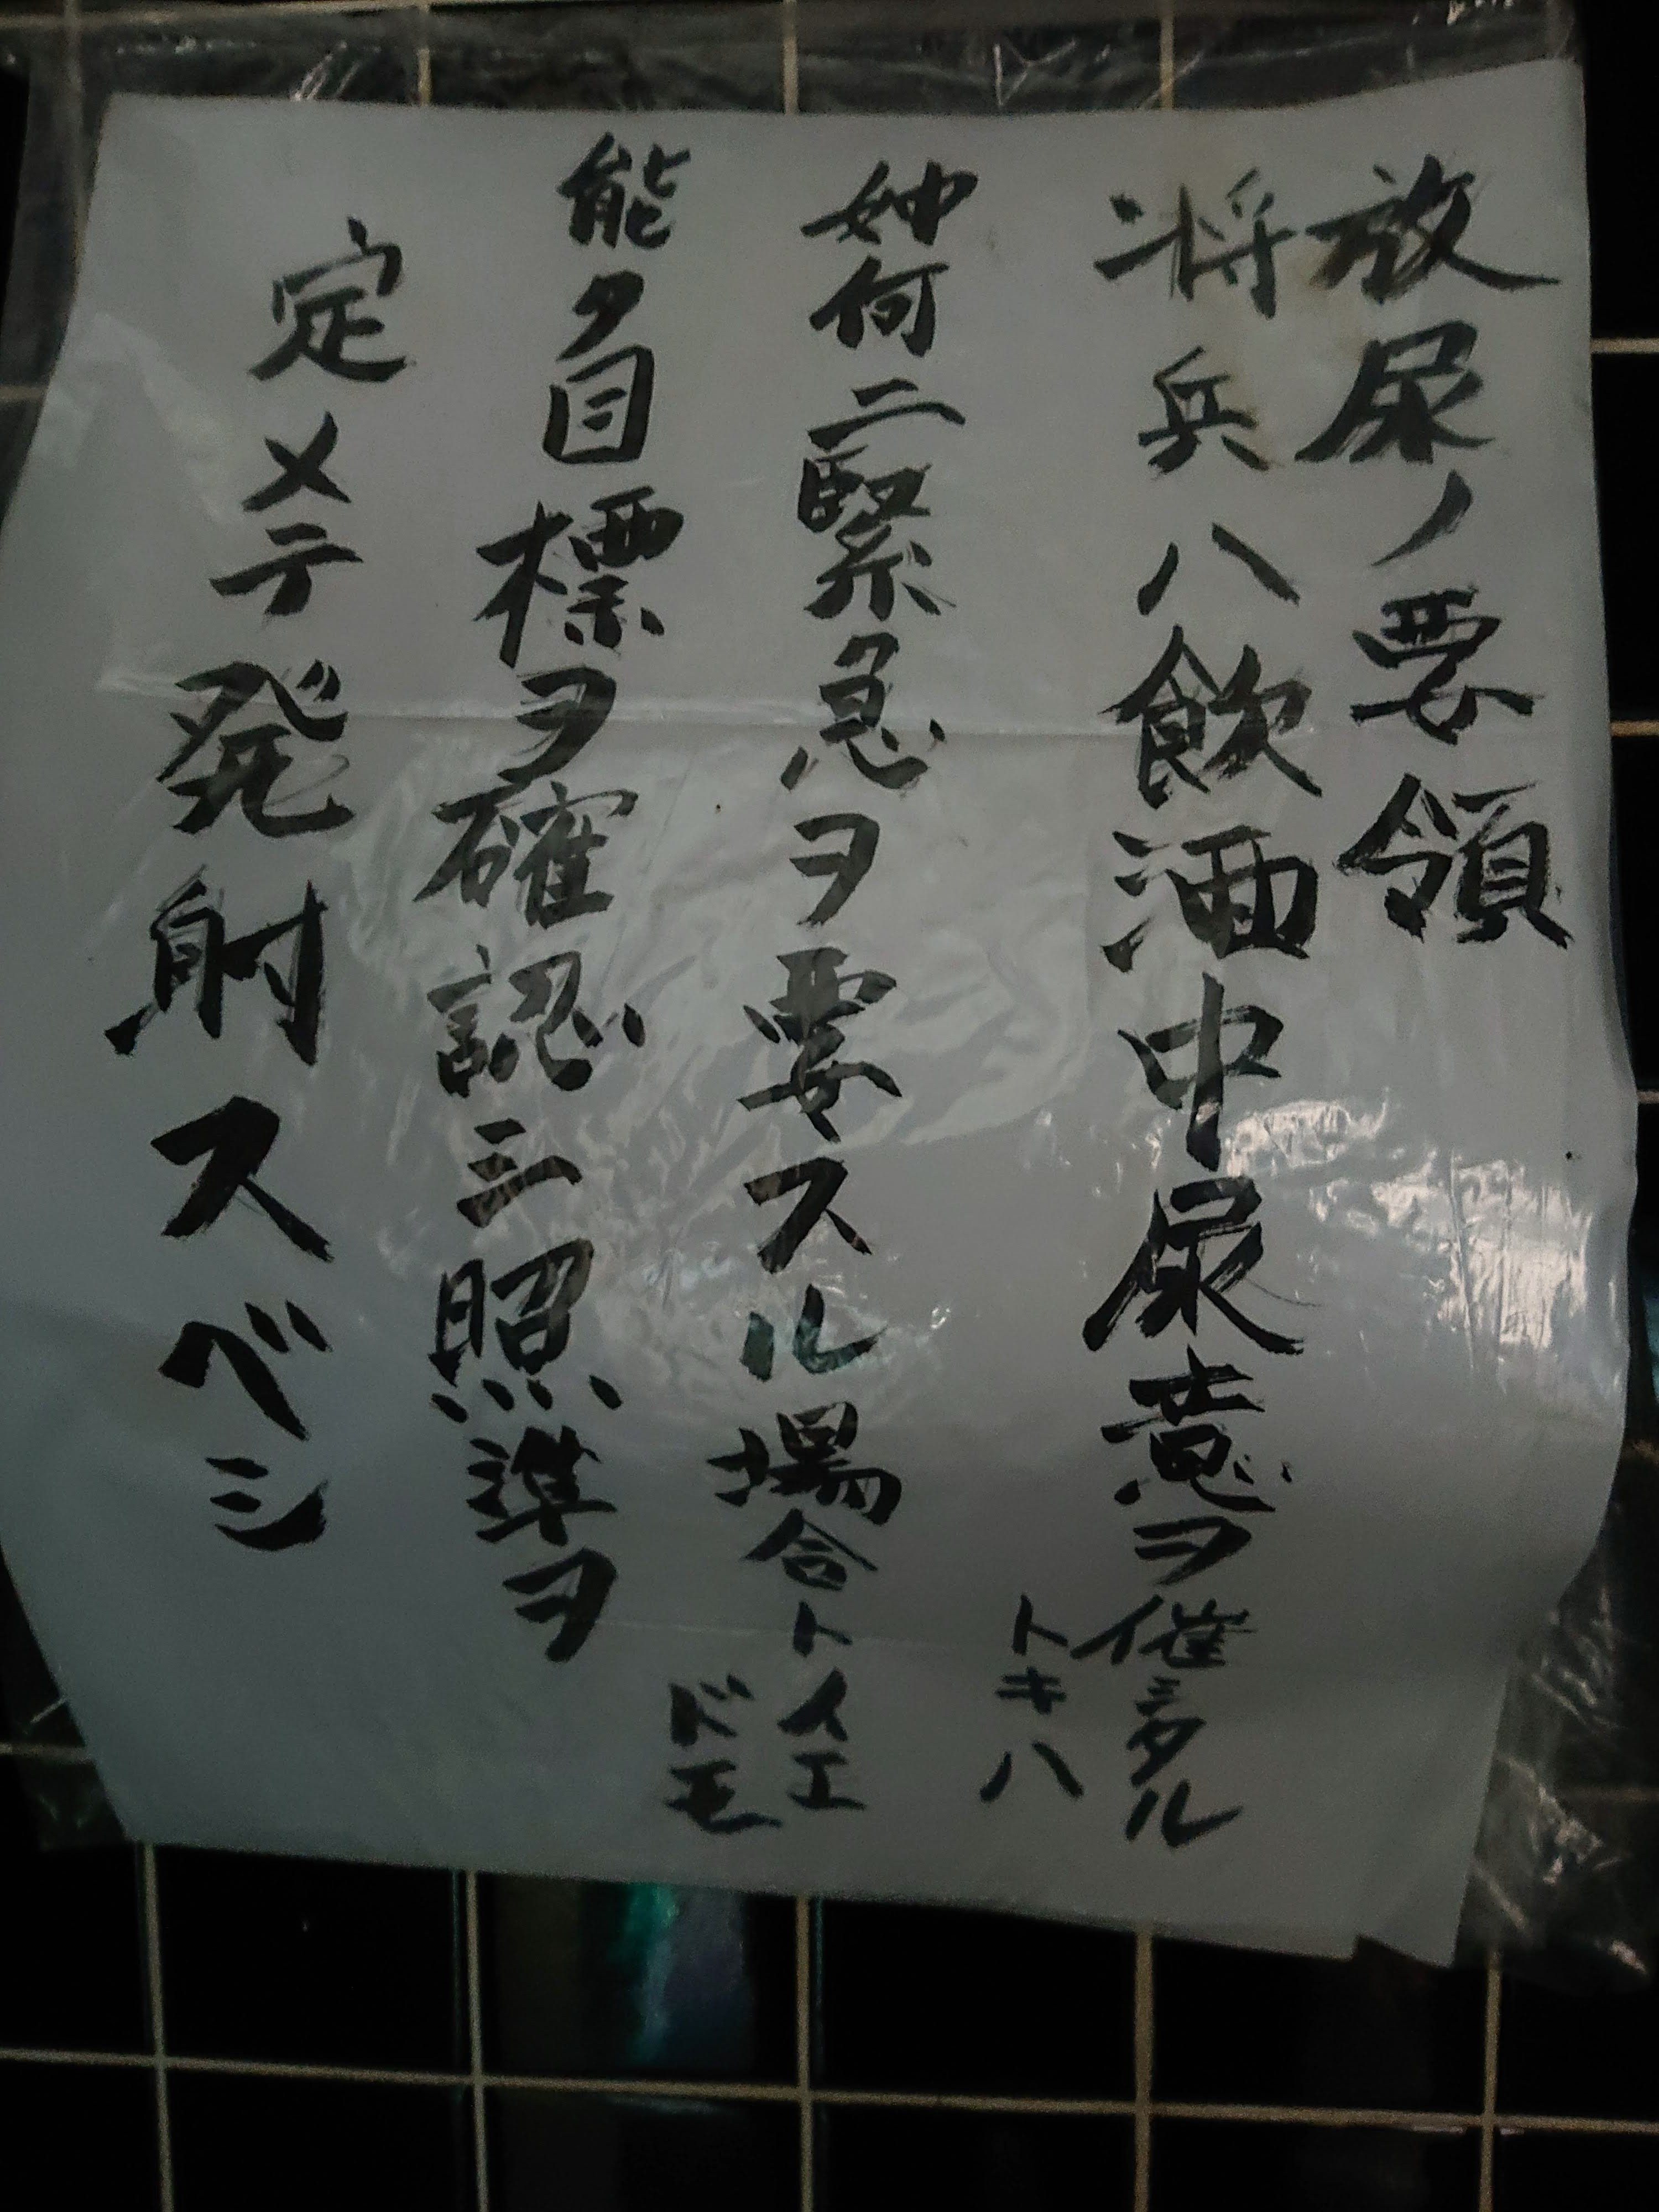 放尿ノ要領
将兵ハ飲酒中尿意ヲ催シタル
トキハ
如何ニ緊急ヲ要スル場合トイエ
ドモ
能ク目標ヲ確認シ照準ヲ
定メテ発射スベシ